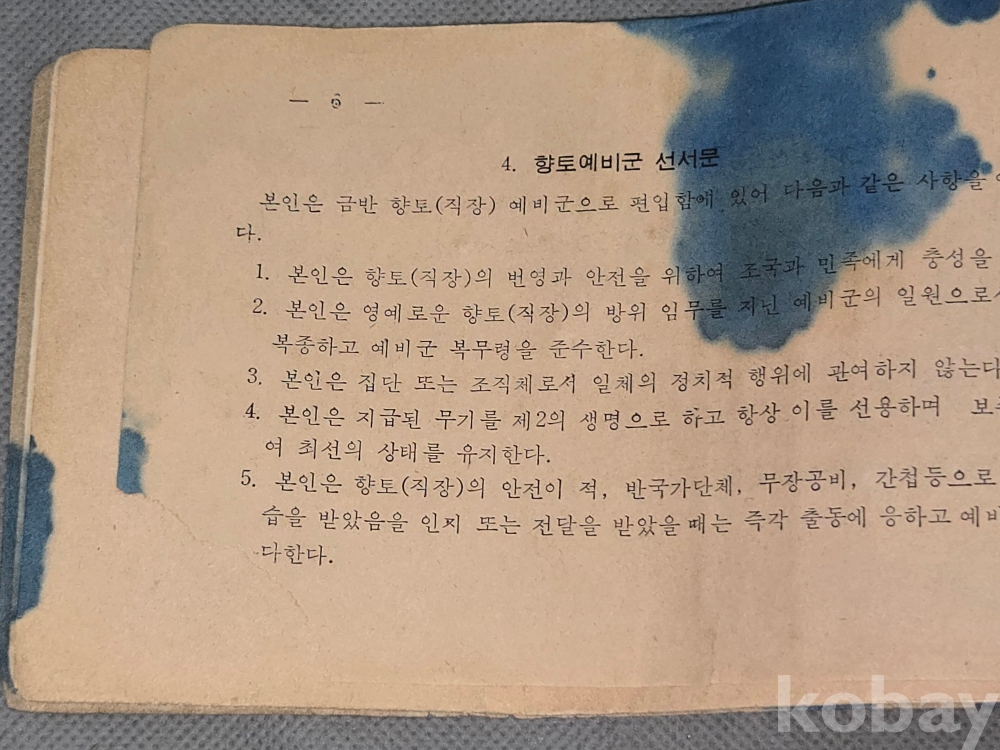 — 6 —
4. 향토예비군 선서문
본인은 금반 향토(직장) 예비군으로 편입함에 있어 다음과 같은 사항을
다.
1. 본인은 향토(직장)의 번영과 안전을 위하여 조국과 민족에게 충성을
2. 본인은 영예로운 향토(직장)의 방위 임무를 지닌 예비군의 일원으로서
복종하고 예비군 복무령을 준수한다.
3. 본인은 집단 또는 조직체로서 일체의 정치적 행위에 관여하지 않는다
4. 본인은 지급된 무기를 제2의 생명으로 하고 항상 이를 선용하며
여 최선의 상태를 유지한다.
5. 본인은 향토(직장)의 안전이 적, 반국가단체, 무장공비, 간첩등으로
습을 받았음을 인지 또는 전달을 받았을 때는 즉각 출동에 응하고 예비
다한다.
kobay